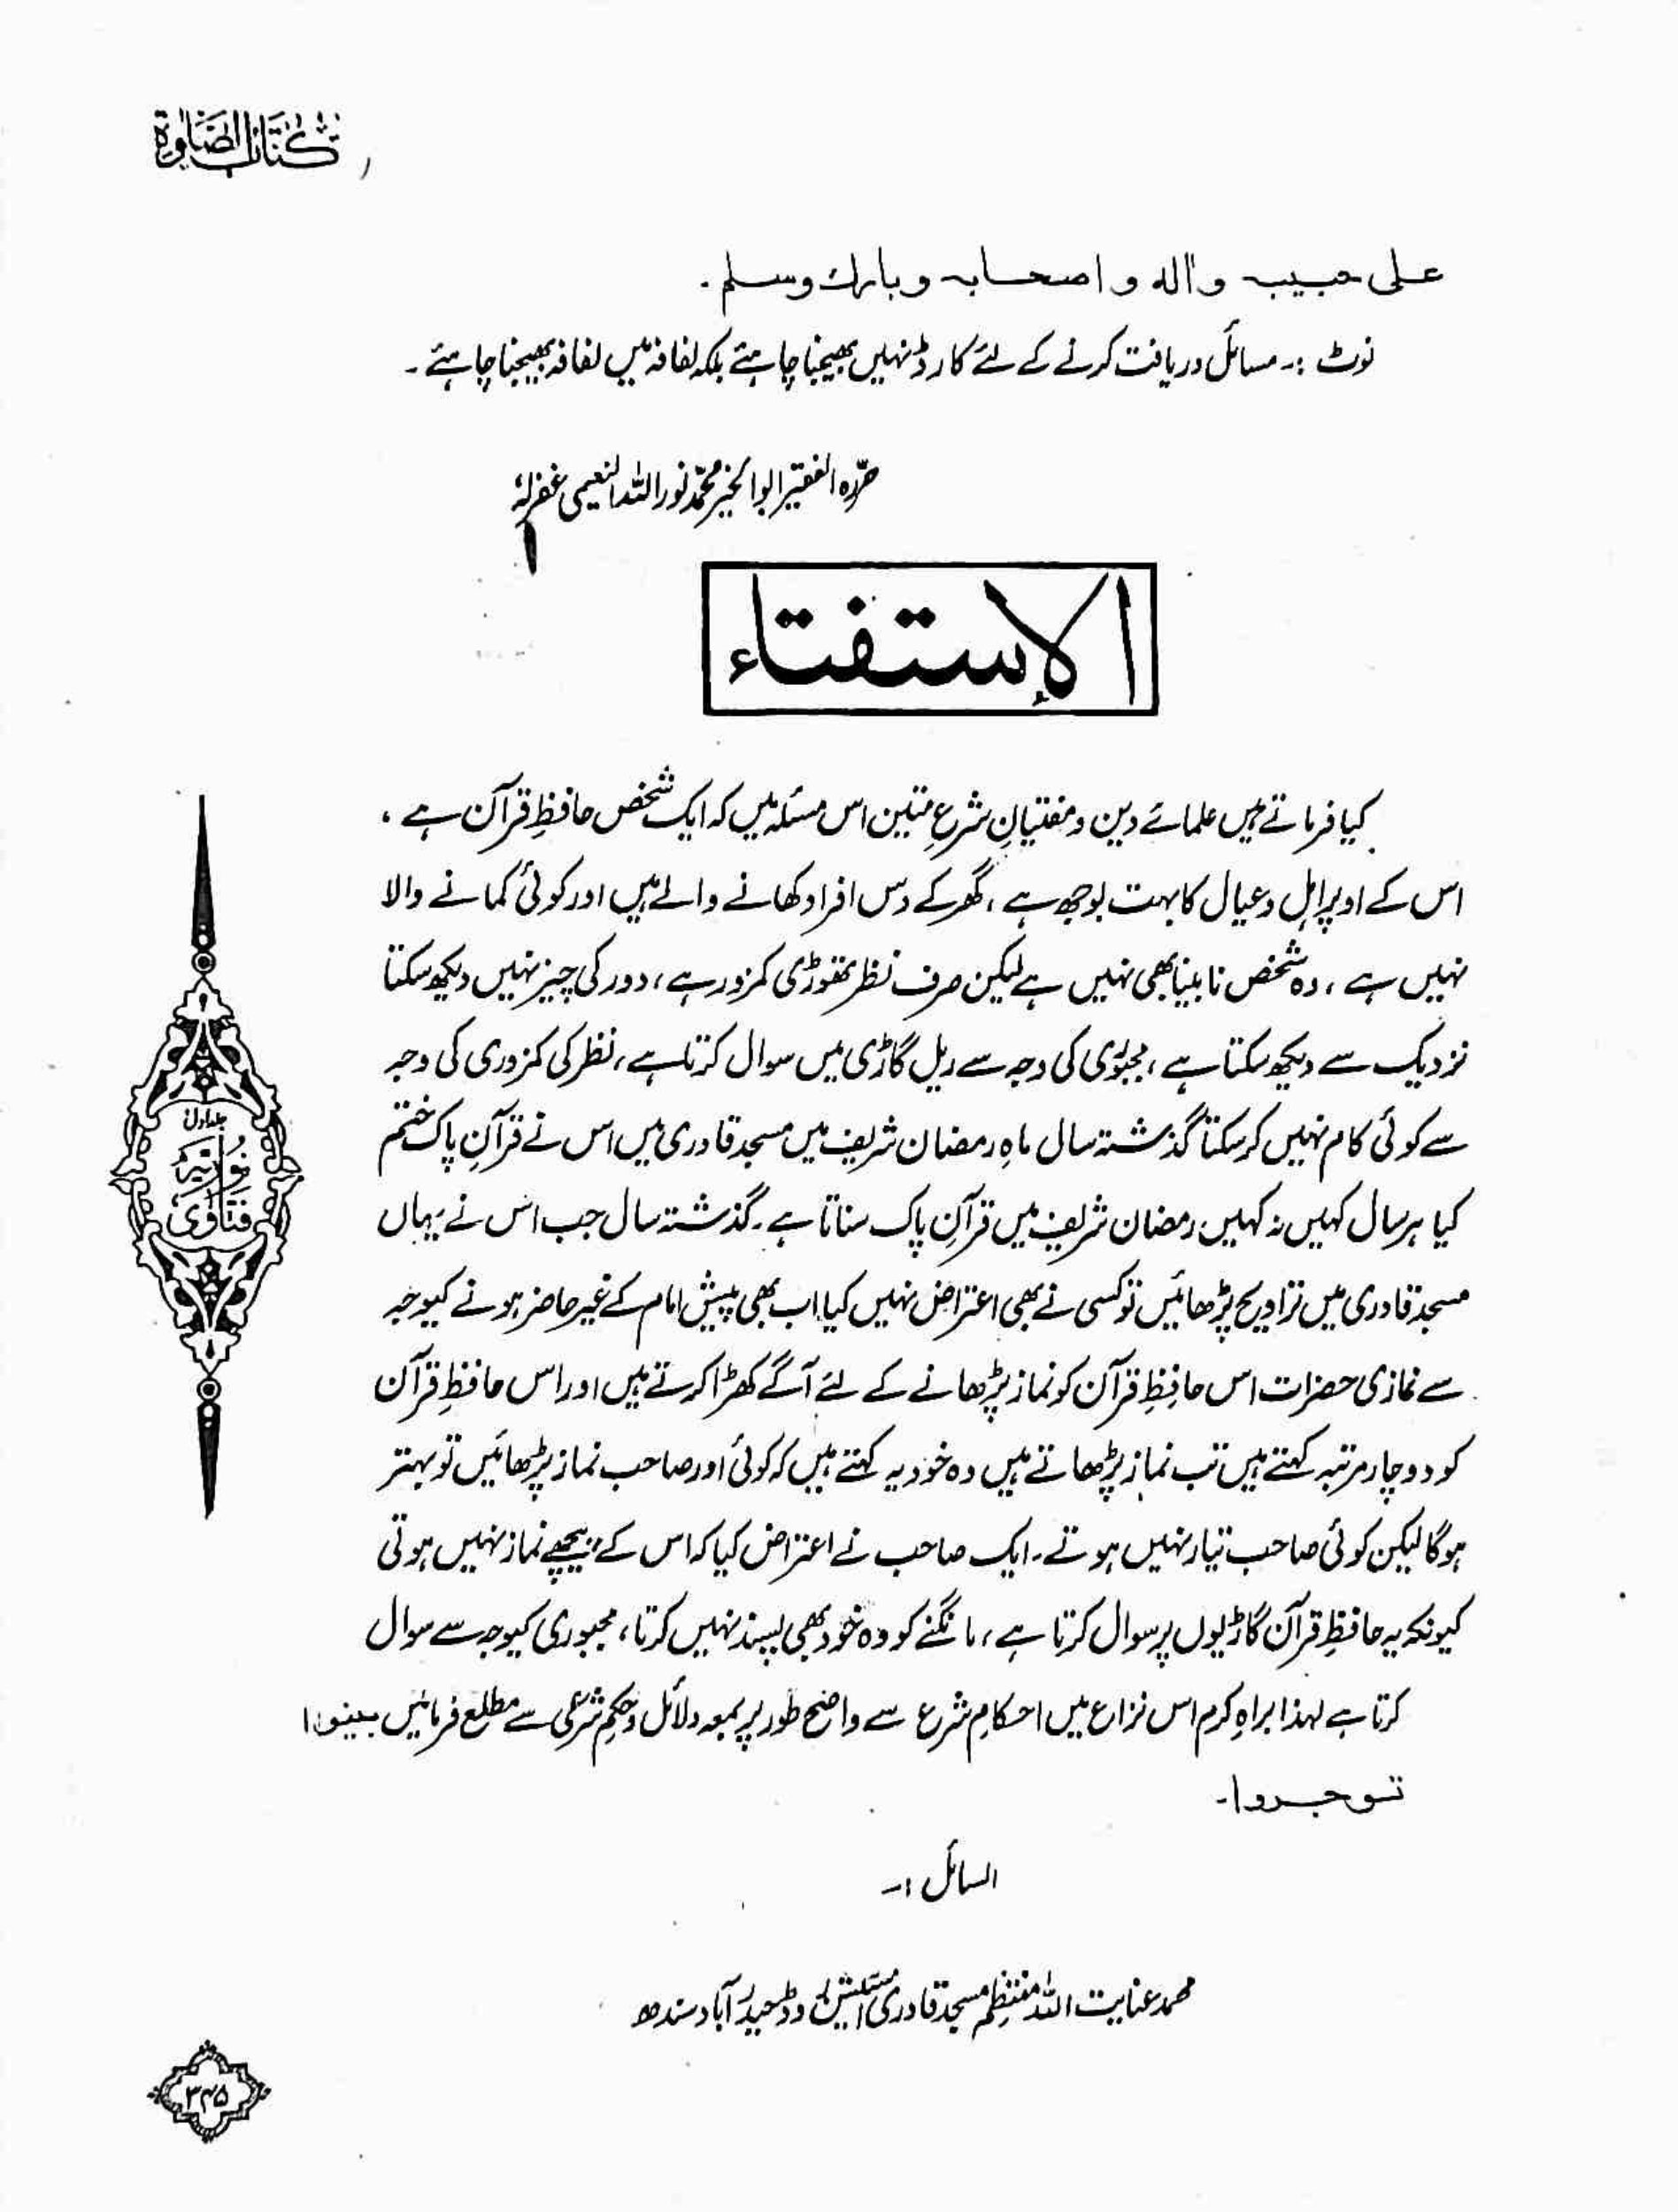 كتاب الصلوة
على حبيبه واٰله و اصحابه وبارك وسلم .
نوٹ :۔ مسائل دریافت کرنے کے لئے کارڈ نہیں بھیجنا چاہئے بلکہ لفافہ میں لفافہ بھیجنا چاہئے ۔
حرّرہ الفقیر ابوالخیر محمّد نور اللہ النعیمی غفرلہٗ
الإستفتاء
کیا فرماتے ہیں علمائے دین و مفتیانِ شرعِ متین اس مسئلہ میں کہ ایک شخص حافظِ قرآن ہے ،
اس کے اوپر اہل و عیال کا بہت بوجھ ہے ، گھر کے دس افراد کھانے والے ہیں اور کوئی کمانے والا
نہیں ہے ، وہ شخص نابینا بھی نہیں ہے لیکن صرف نظر تھوڑی کمزور ہے ، دور کی چیز نہیں دیکھ سکتا
نزدیک سے دیکھ سکتا ہے ، مجبوری کی وجہ سے ریل گاڑی میں سوال کرتا ہے ، نظر کی کمزوری کی وجہ
سے کوئی کام نہیں کر سکتا گذشتہ سال ماہِ رمضان شریف میں مسجد قادری میں اس نے قرآنِ پاک ختم
کیا ہر سال کہیں نہ کہیں رمضان شریف میں قرآنِ پاک سناتا ہے ۔ گذشتہ سال جب اس نے یہاں
مسجد قادری میں تراویح پڑھائیں تو کسی نے بھی اعتراض نہیں کیا اب بھی پیش امام کے غیر حاضر ہونے کیوجہ
سے نمازی حضرات اس حافظِ قرآن کو نماز پڑھانے کے لئے آگے کھڑا کرتے ہیں اور اس حافظِ قرآن
کو دو چار مرتبہ کہتے ہیں تب نماز پڑھاتے ہیں وہ خود یہ کہتے ہیں کہ کوئی اور صاحب نماز پڑھائیں تو بہتر
ہوگا لیکن کوئی صاحب تیار نہیں ہوتے ۔ ایک صاحب نے اعتراض کیا کہ اس کے پیچھے نماز نہیں ہوتی
کیونکہ یہ حافظِ قرآن گاڑیوں پر سوال کرتا ہے ، مانگنے کو وہ خود بھی پسند نہیں کرتا ، مجبوری کیوجہ سے سوال
کرتا ہے لہذا براہِ کرم اس نزاع میں احکامِ شرع سے واضح طور پر بمعہ دلائل و حکمِ شرعی سے مطلع فرمائیں بینوا
توجروا۔
السائل :۔
محمد عنایت اللہ منتظم مسجد قادری اسٹیشن روڈ حیدر آباد سندھ
جلد اول
فتاویٰ نوریہ
۳۴۵